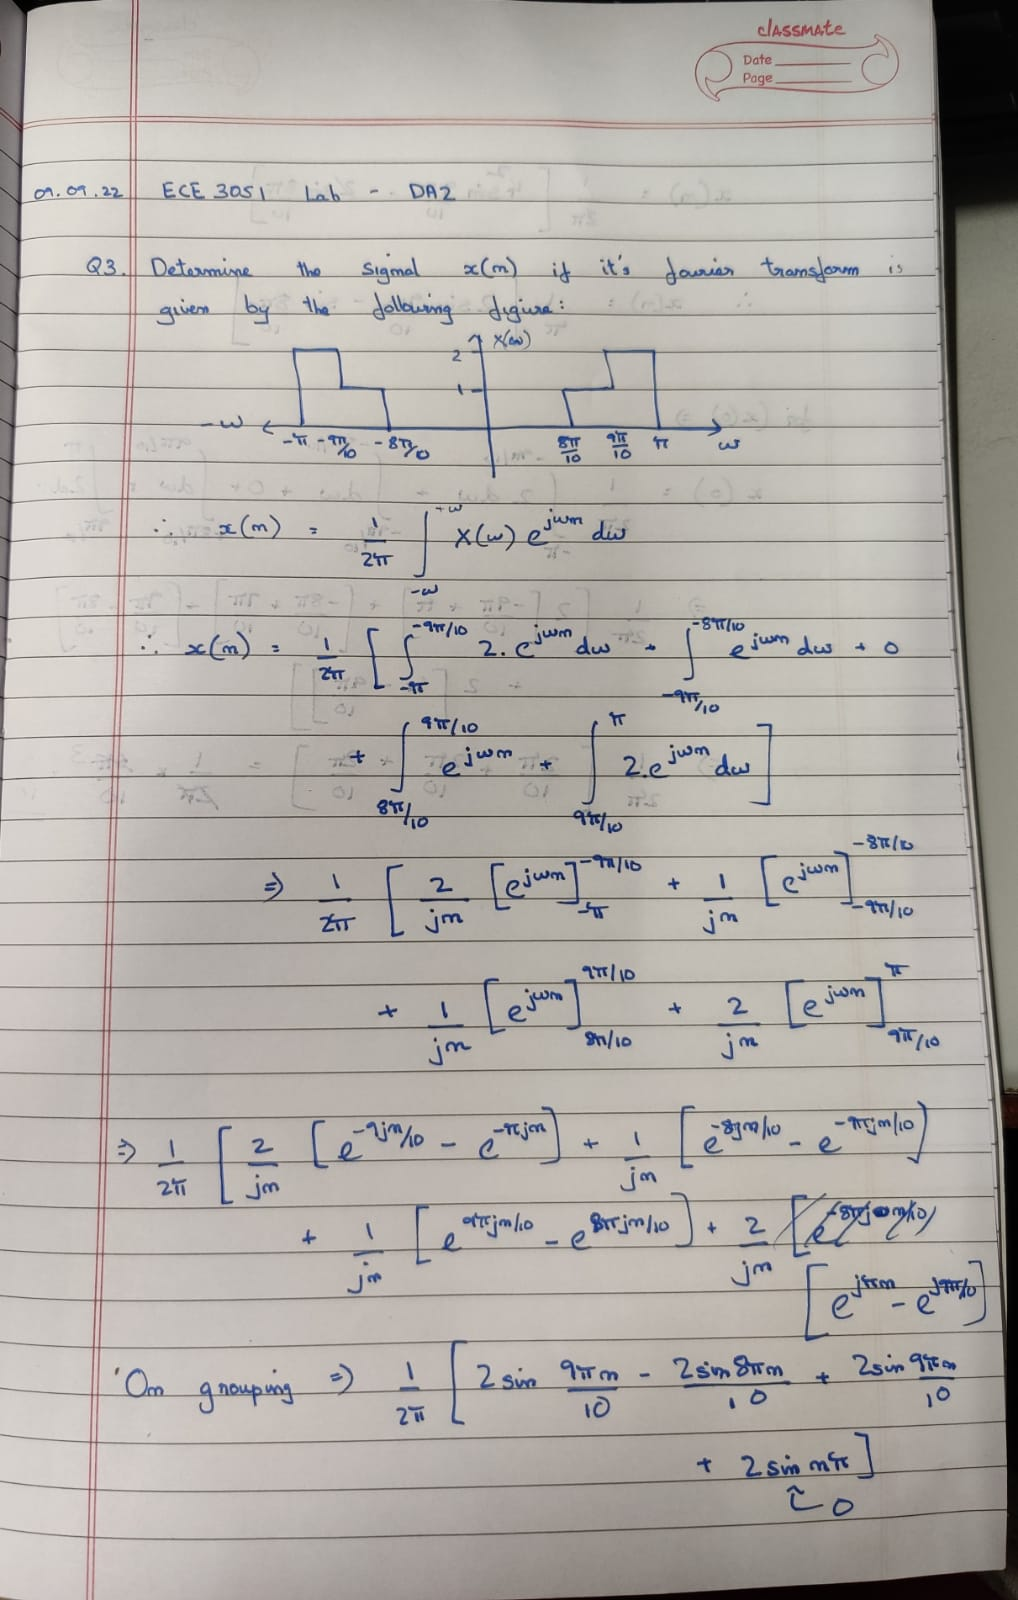 classmate
Date
Page
09.09.22 ECE 3051 Lab - DA2
Q3. Determine the signal x(n) if it's fourier transform is
given by the following figure:
X(ω)
2
1
-ω -π -9π/10 -8π/10 8π/10 9π/10 π ω
∴ x(n) = 1/2π ∫_{-ω}^{+ω} X(ω) e^{jωn} dω
∴ x(n) = 1/2π [ ∫_{-π}^{-9π/10} 2.e^{jωn} dω + ∫_{-9π/10}^{-8π/10} e^{jωn} dω + 0
+ ∫_{8π/10}^{9π/10} e^{jωn} + ∫_{9π/10}^{π} 2.e^{jωn} dω ]
⇒ 1/2π [ 2/jn [e^{jωn}]_{-π}^{-9π/10} + 1/jn [e^{jωn}]_{-9π/10}^{-8π/10}
+ 1/jn [e^{jωn}]_{8π/10}^{9π/10} + 2/jn [e^{jωn}]_{9π/10}^{π}
⇒ 1/2π [ 2/jn [e^{-9jn/10} - e^{-πjn}] + 1/jn [e^{-8jn/10} - e^{-9πjn/10}]
+ 1/jn [e^{9πjn/10} - e^{8πjn/10}] + 2/jn
[e^{jπn} - e^{j9π/10}]
On grouping ⇒ 1/2π [ 2 sin 9πn/10 - 2 sin 8πn/10 + 2 sin 9πn/10
+ 2 sin nπ ]
0